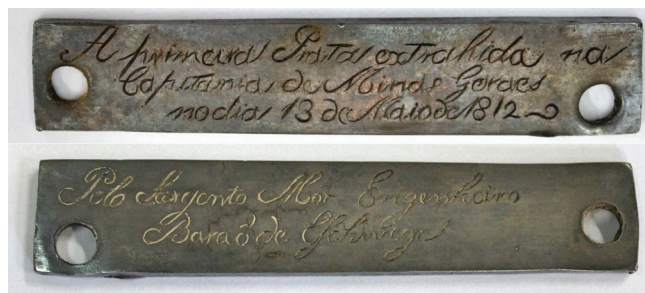 A primeira Prata extrahida na
Capitania de Minas Geraes
no dia 13 de Maio de 1812
Pelo Sargento Mor Engenheiro
Baraõ de Eschwege